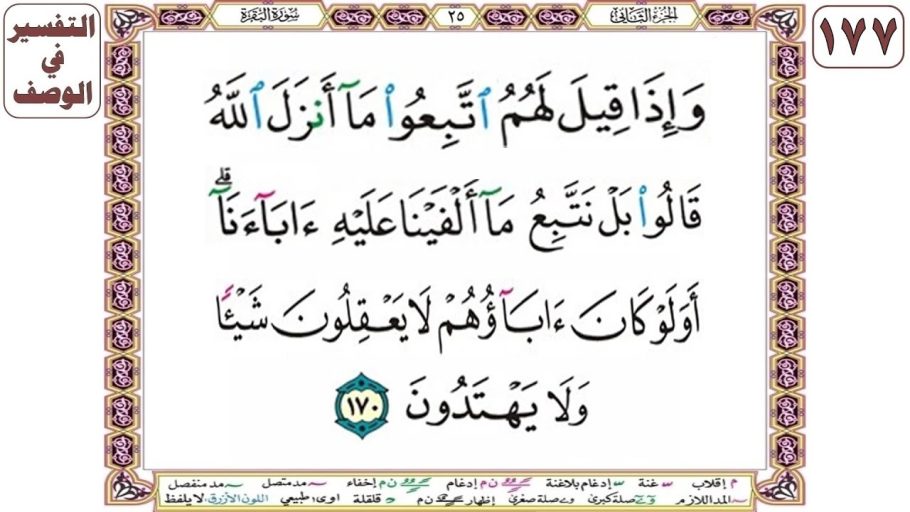 التفسير
في
الوصف
سُورَةُ البَقَرَة
٢٥
الجزء الثاني
١٧٧
وَإِذَا قِيلَ لَهُمُ ٱتَّبِعُوا۟ مَآ أَنزَلَ ٱللَّهُ
قَالُوا۟ بَلْ نَتَّبِعُ مَآ أَلْفَيْنَا عَلَيْهِ ءَابَآءَنَآ ۗ
أَوَلَوْ كَانَ ءَابَآؤُهُمْ لَا يَعْقِلُونَ شَيْـًٔا
وَلَا يَهْتَدُونَ ١٧٠
م إقلاب غنة إدغام بلاغنة ن م إدغام ن م إخفاء مد متصل مد منفصل
المد اللازم صلة كبرى صلة صغرى إظهار ن م قلقلة طبيعي اللون الأزرق لا يلفظ